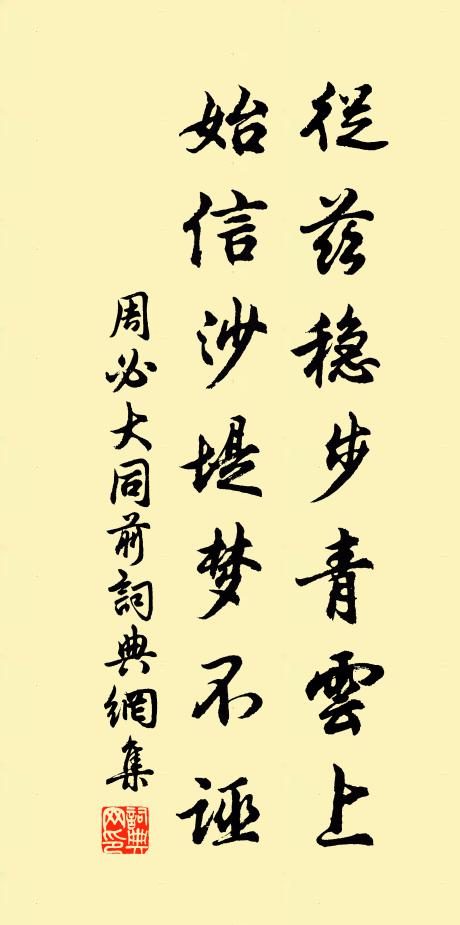 從茲穩步青雲上
始信沙堤梦不誣
周必大同前詞典網集
詞典
网印